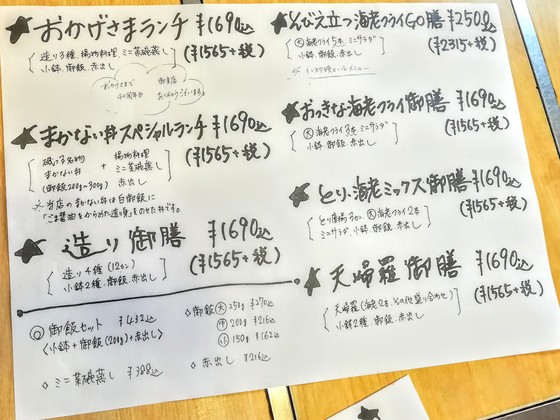 ★おかげさまランチ ¥1690込
(¥1565+税)
造り3種 揚物料理 ミニ茶碗蒸し
小鉢 御飯 赤出し
おかげさまで
40周年 御来店
ありがとうございます
★まかない丼スペシャルランチ ¥1690込
(¥1565+税)
磯っ子名物 揚物料理
まかない丼 + ミニ茶碗蒸し
(御飯200g〜300g) 赤出し
※当店のまかない丼は白御飯に
「ごま醤油をからめた造り身」をのせた丼です。
★造り御膳 ¥1690込
(¥1565+税)
造り4種(12カン)
小鉢2種 御飯 赤出し
◎御飯セット ¥432込
〈小鉢+御飯(200g)+赤出し〉
◇ミニ茶碗蒸し ¥388込
◇御飯 大 250g ¥270込
中 200g ¥216込
小 150g ¥162込
◇赤出し ¥216込
★そびえ立つ海老フライGO膳 ¥2500込
(¥2315+税)
大海老フライ5本 ミニサラダ
小鉢 御飯 赤出し
インスタ映えールメニュー
★おっきな海老フライ御膳 ¥1690込
(¥1565+税)
大海老フライ3本 ミニサラダ
小鉢 御飯 赤出し
★とり・海老ミックス御膳 ¥1690込
(¥1565+税)
とり唐揚3カン 大海老フライ2本
ミニサラダ 小鉢 御飯 赤出し
★天婦羅御膳 ¥1690込
(¥1565+税)
天婦羅(海老2本、その他盛り合わせ)
小鉢2種 御飯 赤出し